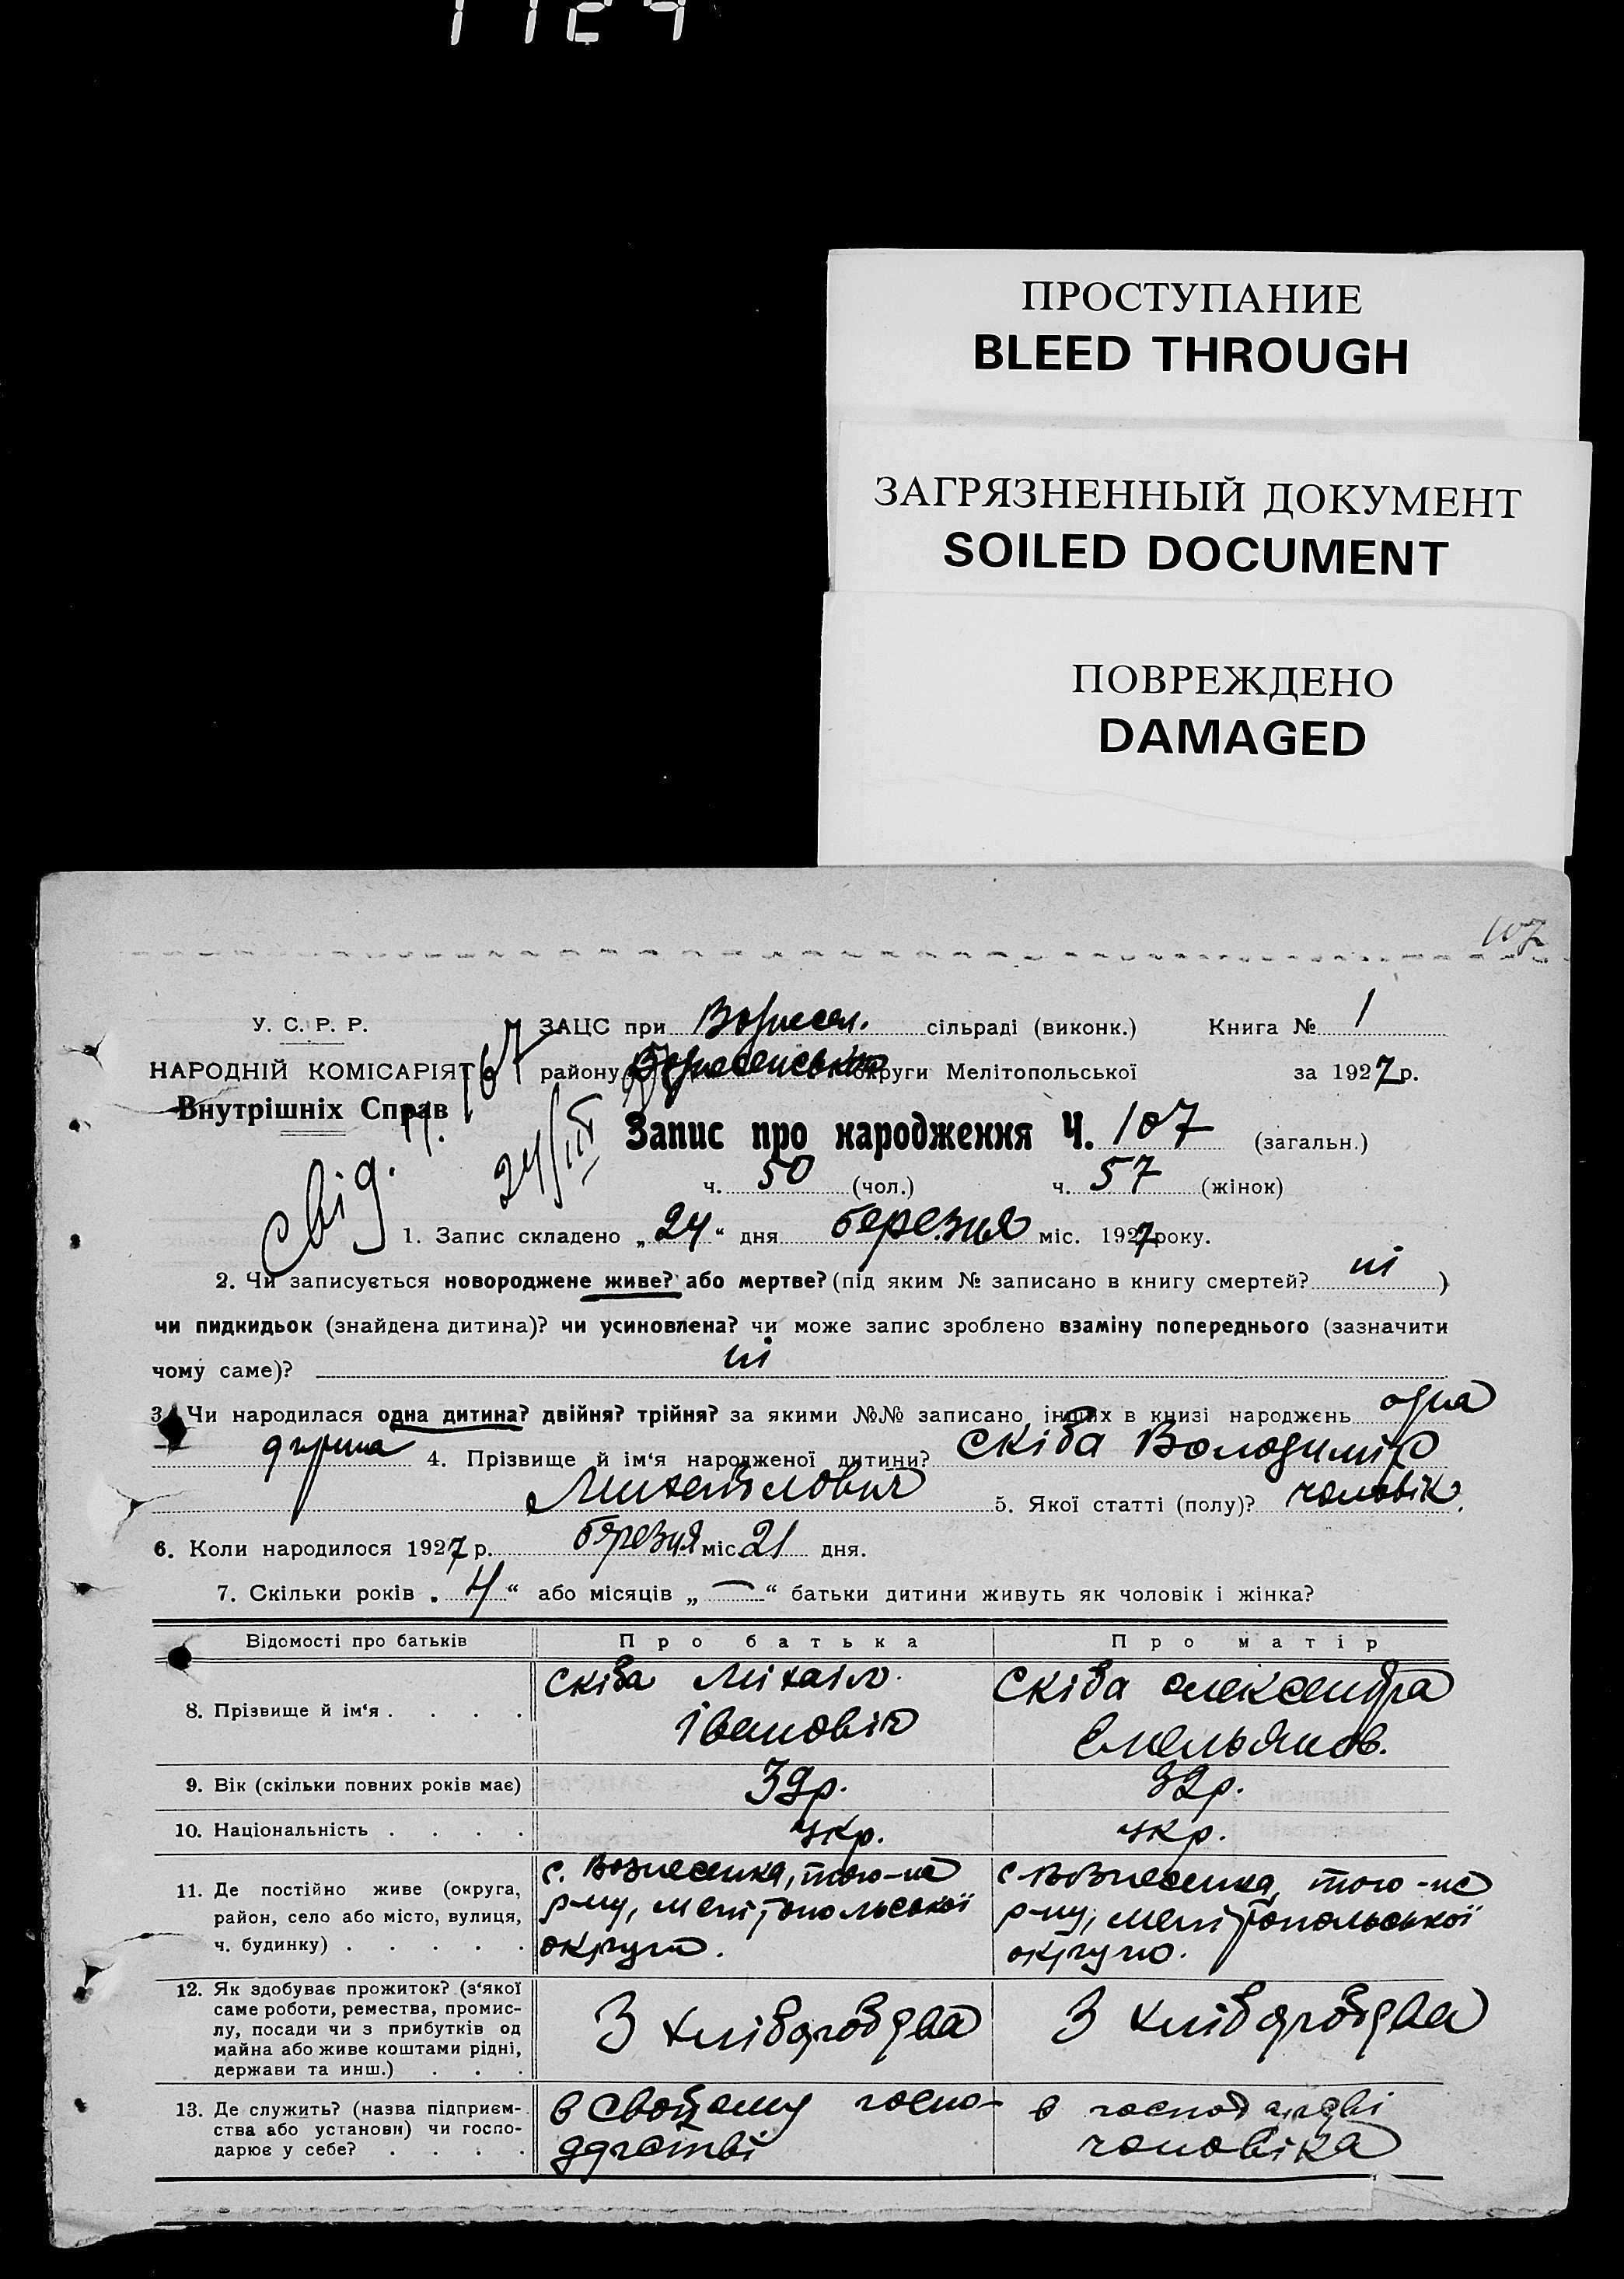 ПРОСТУПАНИЕ
BLEED THROUGH
ЗАГРЯЗНЕННЫЙ ДОКУМЕНТ
SOILED DOCUMENT
ПОВРЕЖДЕНО
DAMAGED
107
У. С. Р. Р.
НАРОДНІЙ КОМІСАРІЯТ
Внутрішніх Справ
ЗАЦС при Вознесен. сільраді (виконк.) Книга № 1
району Вознесенського округи Мелітопольської за 1927 р.
свід.
24/III
Запис про народження Ч. 107 (загальн.)
ч. 50 (чол.) ч. 57 (жінок)
1. Запис складено „24“ дня березня міс. 1927 року.
2. Чи записується новороджене живе? або мертве? (під яким № записано в книгу смертей? ні )
чи пидкидьок (знайдена дитина)? чи усиновлена? чи може запис зроблено взаміну попереднього (зазначити
чому саме)? ні
3. Чи народилася одна дитина? двійня? трійня? за якими №№ записано інших в книзі народжень одна
дитина 4. Прізвище й ім'я народженої дитини? Скіба Володимір
Михайлович 5. Якої статті (полу)? чоловік.
6. Коли народилося 1927 р. березня міс 21 дня.
7. Скільки років „4“ або місяців „—“ батьки дитини живуть як чоловік і жінка?
Відомості про батьків Про батька Про матір
8. Прізвище й ім'я . . . . Скіба Міхаіл Івановіч Скіба Олександра Емельянов.
9. Вік (скільки повних років має) 39р. 32р.
10. Національність . . . . укр. укр.
11. Де постійно живе (округа, с. Вознесенка, того-ж с. Вознесенка, того-ж
район, село або місто, вулиця, р-ну, Мелітопольської р-ну, Мелітопольської
ч. будинку) . . . . . округи. округи.
12. Як здобуває прожиток? (з'якої
саме роботи, ремества, промис-
лу, посади чи з прибутків од З хліборобства З хліборобства
майна або живе коштами рідні,
держави та инш.) . . .
13. Де служить? (назва підприєм- в своїому госпо- в господарстві
ства або установи) чи госпо- дарстві чоловіка
дарює у себе? . . . .